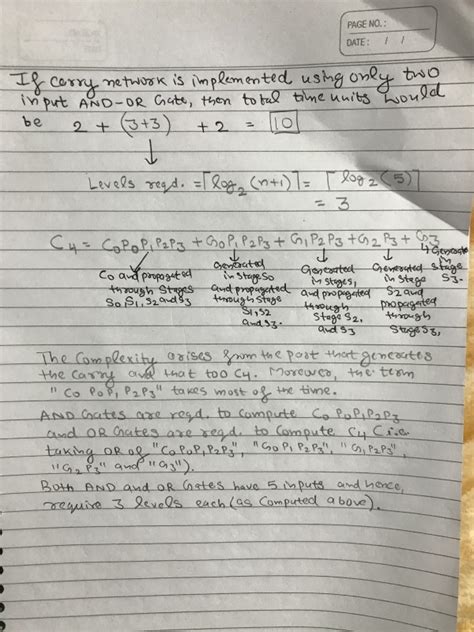 PAGE NO.:
DATE: / /
If carry network is implemented using only two
input AND-OR Gate, then total time units would
be 2 + (3+3) + 2 = 10
Levels reqd. = ⌈log₂(n+1)⌉ = ⌈log₂(5)⌉
= 3
C₄ = C₀P₀P₁P₂P₃ + G₀P₁P₂P₃ + G₁P₂P₃ + G₂P₃ + G₃
C₀ and propogated through Stages S₀, S₁, S₂ and S₃
Generated in stage S₀ and propagated through stage S₁, S₂ and S₃.
Generated in stage S₁ and propagated through Stage S₂, and S₃
Generated in stage S₂ and propagated through Stage S₃,
Generate in stage S₃.
The Complexity arises from the part that generates
the Carry and that too C₄. Moreover, the term
"C₀ P₀P₁ P₂P₃" takes most of the time.
AND Gates are reqd. to compute C₀ P₀P₁P₂P₃
and OR Gates are reqd. to Compute C₄ C i.e
taking OR of "C₀P₀P₁P₂P₃", "G₀P₁P₂P₃", "G₁P₂P₃",
"G₂P₃" and "G₃").
Both AND and OR Gates have 5 inputs and hence,
require 3 levels each (as Computed above).